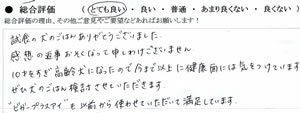 ● 総合評価 (とても良い・良い・普通・あまり良くない・良くない)
総合評価の理由、その他ご意見やご要望などあればお願いします!
試食の犬のごはんありがとうございました。
感想の返事おそくなって申しわけございません。
10才をすぎ高齢犬になったので今まで以上に健康面には気をつけています。
ぜひ犬のごはん検討させていただきます。
"ビガープラスアイ"も以前から使わせていただいて満足しています。